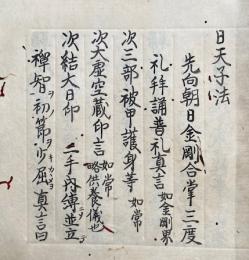 日天子法
先向朝日金剛合掌三度
礼拝誦普礼真言 如金剛界
次三部被甲護身等 如常
次大虚空蔵印言 如常 略供養儀也
次結大日印 二手外縛並立
禅智初節少屈真言曰